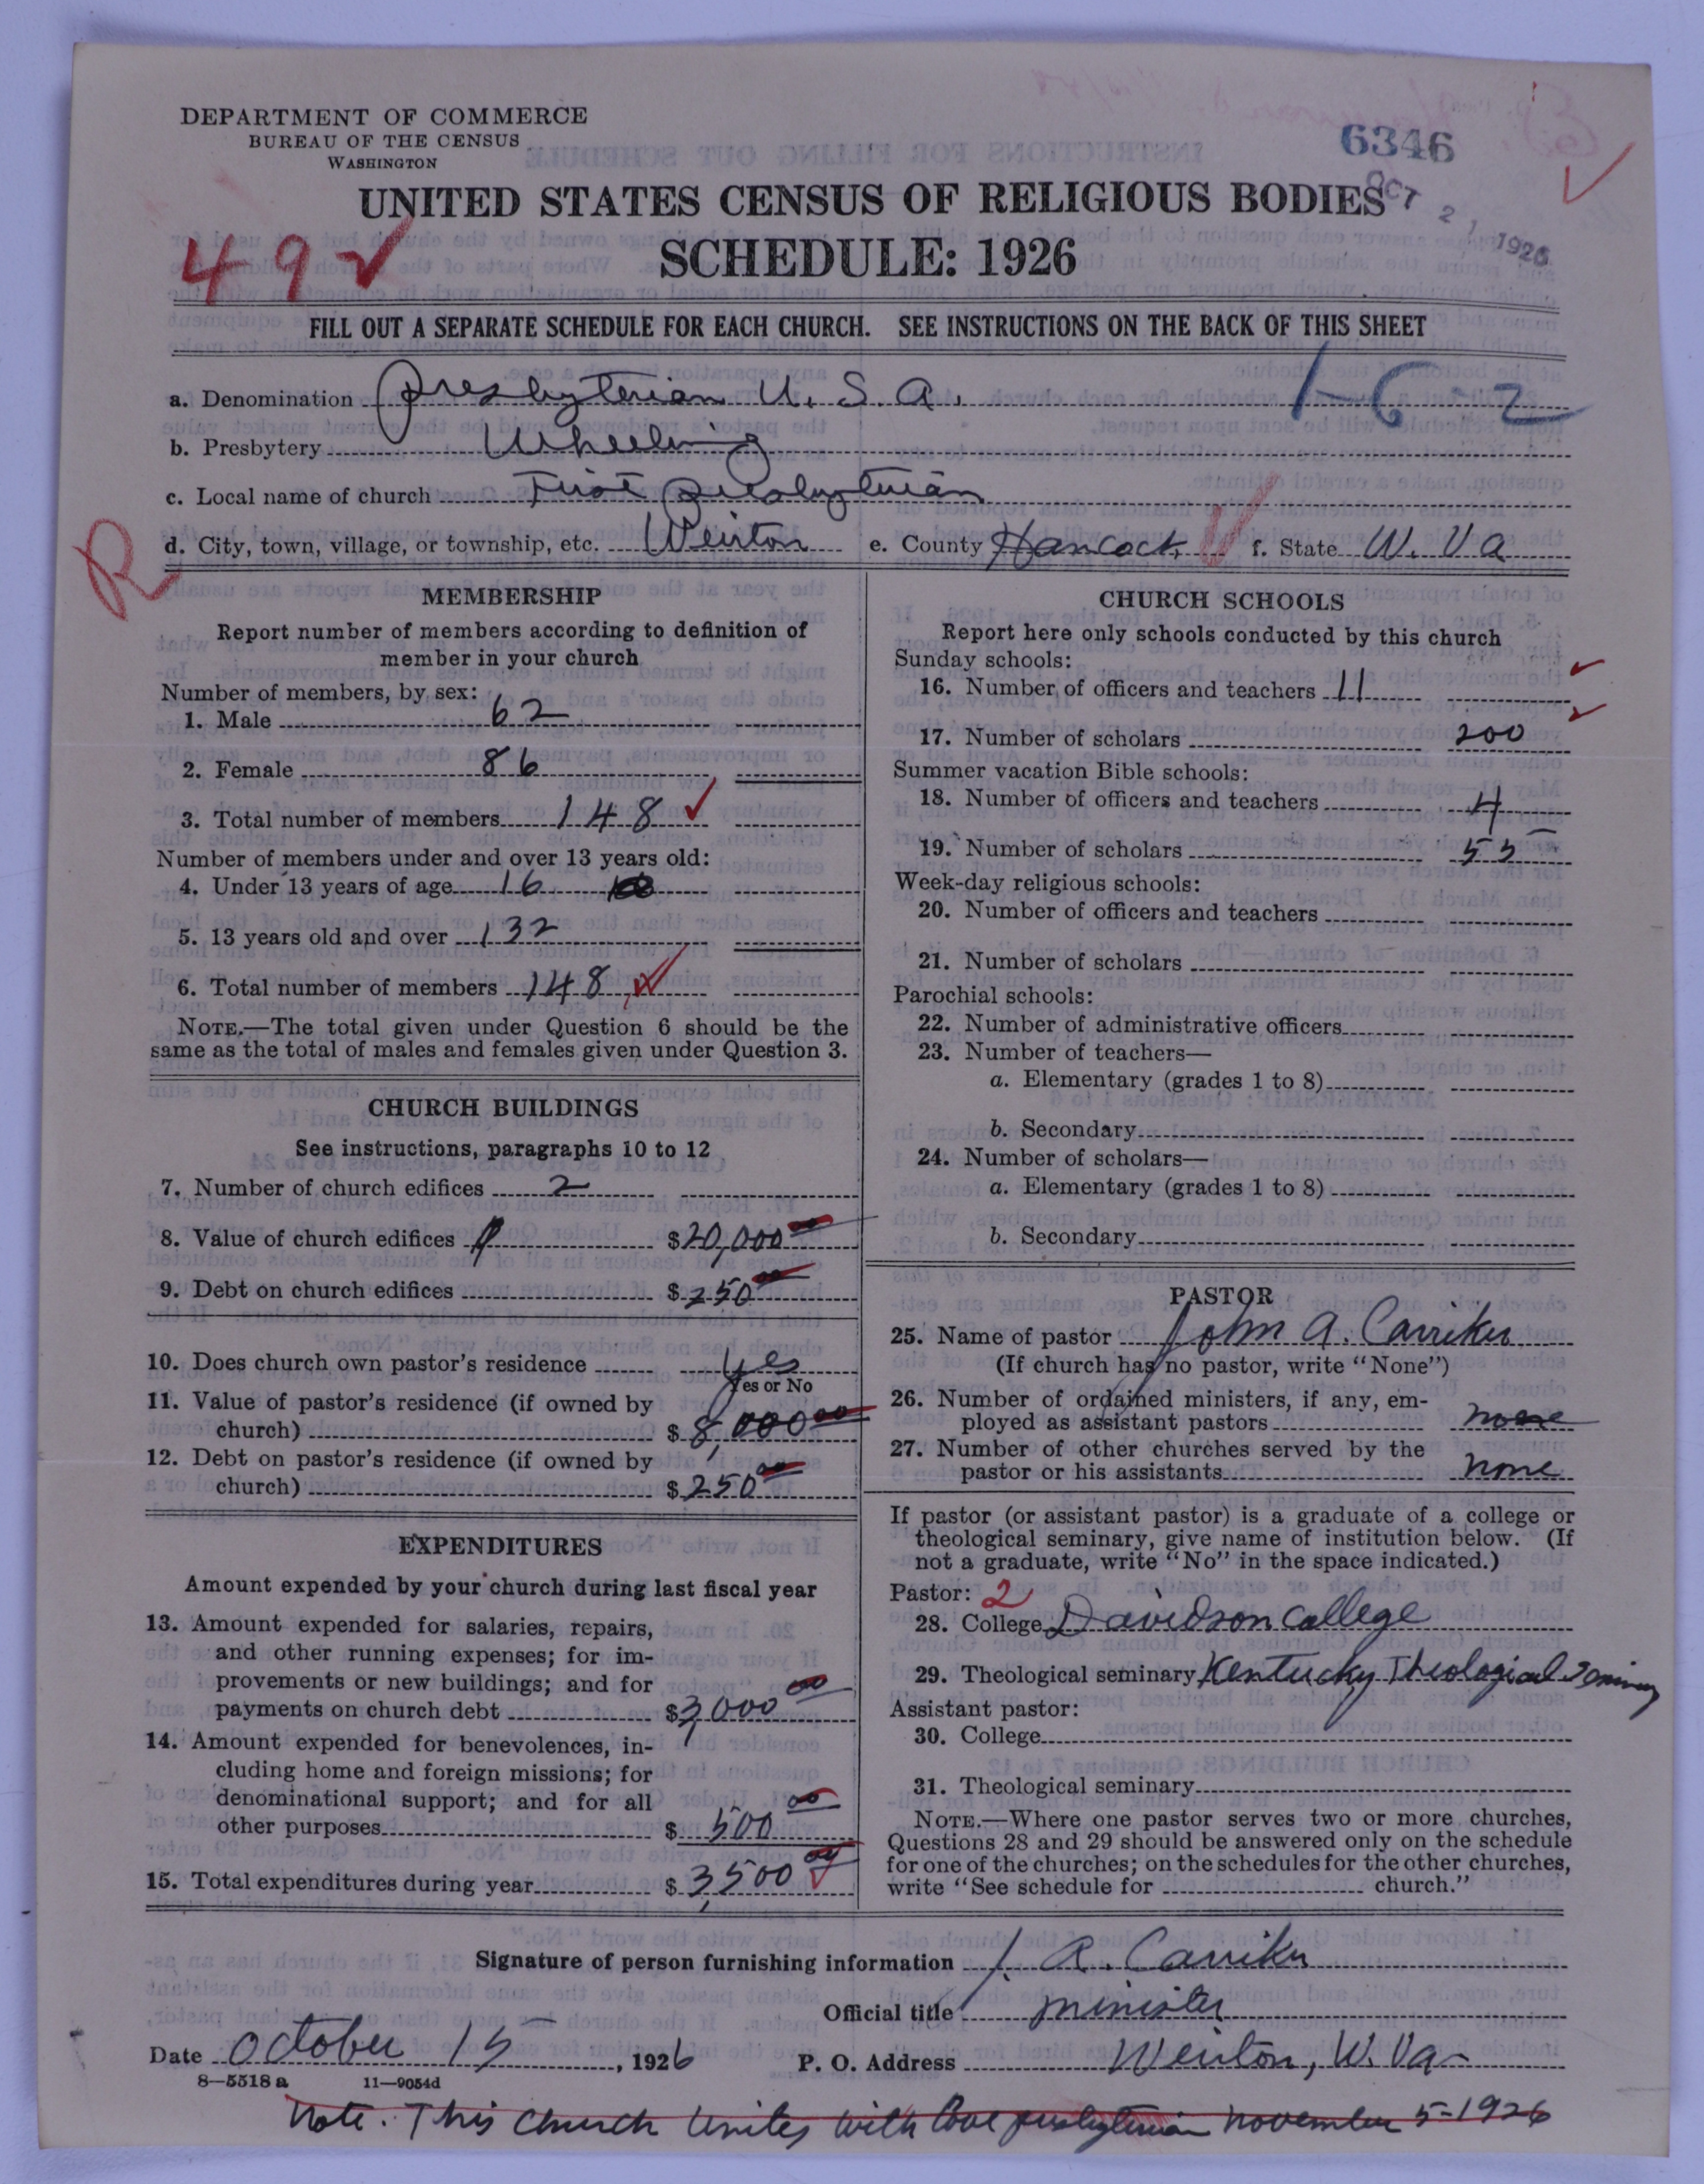 DEPARTMENT OF COMMERCE
BUREAU OF THE CENSUS
WASHINGTON
6346
OCT 21 1926
UNITED STATES CENSUS OF RELIGIOUS BODIES
SCHEDULE: 1926
49
FILL OUT A SEPARATE SCHEDULE FOR EACH CHURCH. SEE INSTRUCTIONS ON THE BACK OF THIS SHEET
1-6-2
a. Denomination Presbyterian U. S. A.
b. Presbytery Wheeling
c. Local name of church First Presbyterian
R
d. City, town, village, or township, etc. Weirton e. County Hancock f. State W. Va
MEMBERSHIP
Report number of members according to definition of
member in your church
Number of members, by sex:
1. Male 62
2. Female 86
3. Total number of members 148
Number of members under and over 13 years old:
4. Under 13 years of age 16
5. 13 years old and over 132
6. Total number of members 148
NOTE.—The total given under Question 6 should be the
same as the total of males and females given under Question 3.
CHURCH BUILDINGS
See instructions, paragraphs 10 to 12
7. Number of church edifices 2
8. Value of church edifices $20,000 00
9. Debt on church edifices $250 00
10. Does church own pastor's residence yes
Yes or No
11. Value of pastor's residence (if owned by
church) $8,000 00
12. Debt on pastor's residence (if owned by
church) $250 00
EXPENDITURES
Amount expended by your church during last fiscal year
13. Amount expended for salaries, repairs,
and other running expenses; for im-
provements or new buildings; and for
payments on church debt $3,000 00
14. Amount expended for benevolences, in-
cluding home and foreign missions; for
denominational support; and for all
other purposes $500 00
15. Total expenditures during year $3,500 00
CHURCH SCHOOLS
Report here only schools conducted by this church
Sunday schools:
16. Number of officers and teachers 11
17. Number of scholars 200
Summer vacation Bible schools:
18. Number of officers and teachers 4
19. Number of scholars 55
Week-day religious schools:
20. Number of officers and teachers
21. Number of scholars
Parochial schools:
22. Number of administrative officers
23. Number of teachers—
a. Elementary (grades 1 to 8)
b. Secondary
24. Number of scholars—
a. Elementary (grades 1 to 8)
b. Secondary
PASTOR
25. Name of pastor John A. Carriker
(If church has no pastor, write "None")
26. Number of ordained ministers, if any, em-
ployed as assistant pastors none
27. Number of other churches served by the
pastor or his assistants none
If pastor (or assistant pastor) is a graduate of a college or
theological seminary, give name of institution below. (If
not a graduate, write "No" in the space indicated.)
Pastor: 2
28. College Davidson College
29. Theological seminary Kentucky Theological Seminary
Assistant pastor:
30. College
31. Theological seminary
NOTE.—Where one pastor serves two or more churches,
Questions 28 and 29 should be answered only on the schedule
for one of the churches; on the schedules for the other churches,
write "See schedule for church."
Signature of person furnishing information J. A. Carriker
Official title minister
Date October 15, 1926 P. O. Address Weirton, W. Va
8—5518 a 11—9054d
Note. This Church Unites with Cove presbyterian November 5-1926